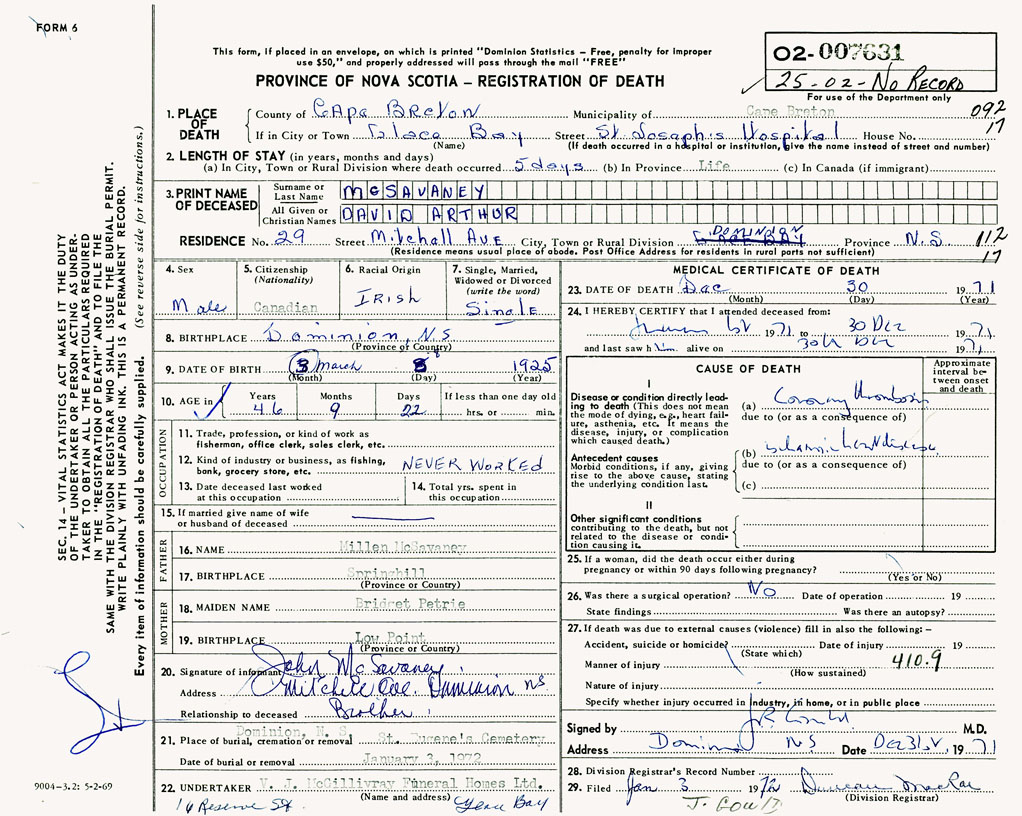 FORM 6
This form, if placed in an envelope, on which is printed "Dominion Statistics – Free, penalty for improper
use $50," and properly addressed will pass through the mail "FREE"
PROVINCE OF NOVA SCOTIA – REGISTRATION OF DEATH
02-007631
25-02-No Record
For use of the Department only
092
17
1. PLACE OF DEATH
County of Cape Breton Municipality of Cape Breton
If in City or Town Glace Bay Street St Joseph's Hospital House No.
(Name) (If death occurred in a hospital or institution, give the name instead of street and number)
2. LENGTH OF STAY (in years, months and days)
(a) In City, Town or Rural Division where death occurred 5 days (b) In Province Life (c) In Canada (if immigrant)
3. PRINT NAME OF DECEASED
Surname or Last Name McSAVANEY
All Given or Christian Names DAVID ARTHUR
RESIDENCE No. 29 Street Mitchell AVE City, Town or Rural Division Province N.S
(Residence means usual place of abode. Post Office Address for residents in rural parts not sufficient)
112
17
4. Sex
Male
5. Citizenship
(Nationality)
Canadian
6. Racial Origin
IRISH
7. Single, Married,
Widowed or Divorced
(write the word)
Single
8. BIRTHPLACE Dominion, N.S
(Province of Country)
9. DATE OF BIRTH 3 March 8 1925
(Month) (Day) (Year)
10. AGE in
Years Months Days If less than one day old
46 9 22 hrs. or min.
OCCUPATION
11. Trade, profession, or kind of work as
fisherman, office clerk, sales clerk, etc.
12. Kind of industry or business, as fishing,
bank, grocery store, etc. NEVER WORKED
13. Date deceased last worked
at this occupation
14. Total yrs. spent in
this occupation
15. If married give name of wife
or husband of deceased
FATHER
16. NAME Millen McSavaney
17. BIRTHPLACE Springhill
(Province or Country)
MOTHER
18. MAIDEN NAME Bridget Petrie
19. BIRTHPLACE Low Point
(Province or Country)
20. Signature of informant John McSavaney
Address Mitchell Ave. Dominion NS
Relationship to deceased Brother
21. Place of burial, cremation or removal Dominion, N. S. St. Eugene's Cemetery
Date of burial or removal January 3, 1972
22. UNDERTAKER V. J. McGillivray Funeral Homes Ltd.
(Name and address)
16 Reserve St. Glace Bay
MEDICAL CERTIFICATE OF DEATH
23. DATE OF DEATH Dec 30 1971
(Month) (Day) (Year)
24. I HEREBY CERTIFY that I attended deceased from:
1971 to 30 Dec 1971
and last saw him alive on 30th Dec 1971
CAUSE OF DEATH
Approximate
interval be-
tween onset
and death
I
Disease or condition directly lead-
ing to death (This does not mean
the mode of dying, e.g., heart fail-
ure, asthenia, etc. It means the
disease, injury, or complication
which caused death.)
(a) Coronary thrombosis
due to (or as a consequence of)
Antecedent causes
Morbid conditions, if any, giving
rise to the above cause, stating
the underlying condition last.
(b) Ischaemic heart disease
due to (or as a consequence of)
(c)
II
Other significant conditions
contributing to the death, but not
related to the disease or condi-
tion causing it.
25. If a woman, did the death occur either during
pregnancy or within 90 days following pregnancy?
(Yes or No)
26. Was there a surgical operation? No Date of operation 19
State findings Was there an autopsy?
27. If death was due to external causes (violence) fill in also the following: –
Accident, suicide or homicide? Date of injury 19
(State which)
Manner of injury 410.9
(How sustained)
Nature of injury
Specify whether injury occurred in industry, in home, or in public place
Signed by M.D.
Address Dominion NS Date Dec 31 1971
28. Division Registrar's Record Number
29. Filed Jan 3 1972 Duncan MacRae
(Division Registrar)
J. Gould
SEC. 14 – VITAL STATISTICS ACT MAKES IT THE DUTY
OF THE UNDERTAKER OR PERSON ACTING AS UNDER-
TAKER TO OBTAIN ALL THE PARTICULARS REQUIRED
IN THE "REGISTRATION OF DEATH" AND TO FILE THE
SAME WITH THE DIVISION REGISTRAR WHO SHALL ISSUE THE BURIAL PERMIT.
WRITE PLAINLY WITH UNFADING INK. THIS IS A PERMANENT RECORD.
Every item of information should be carefully supplied. (See reverse side for instructions.)
9004-3.2: 5-2-69